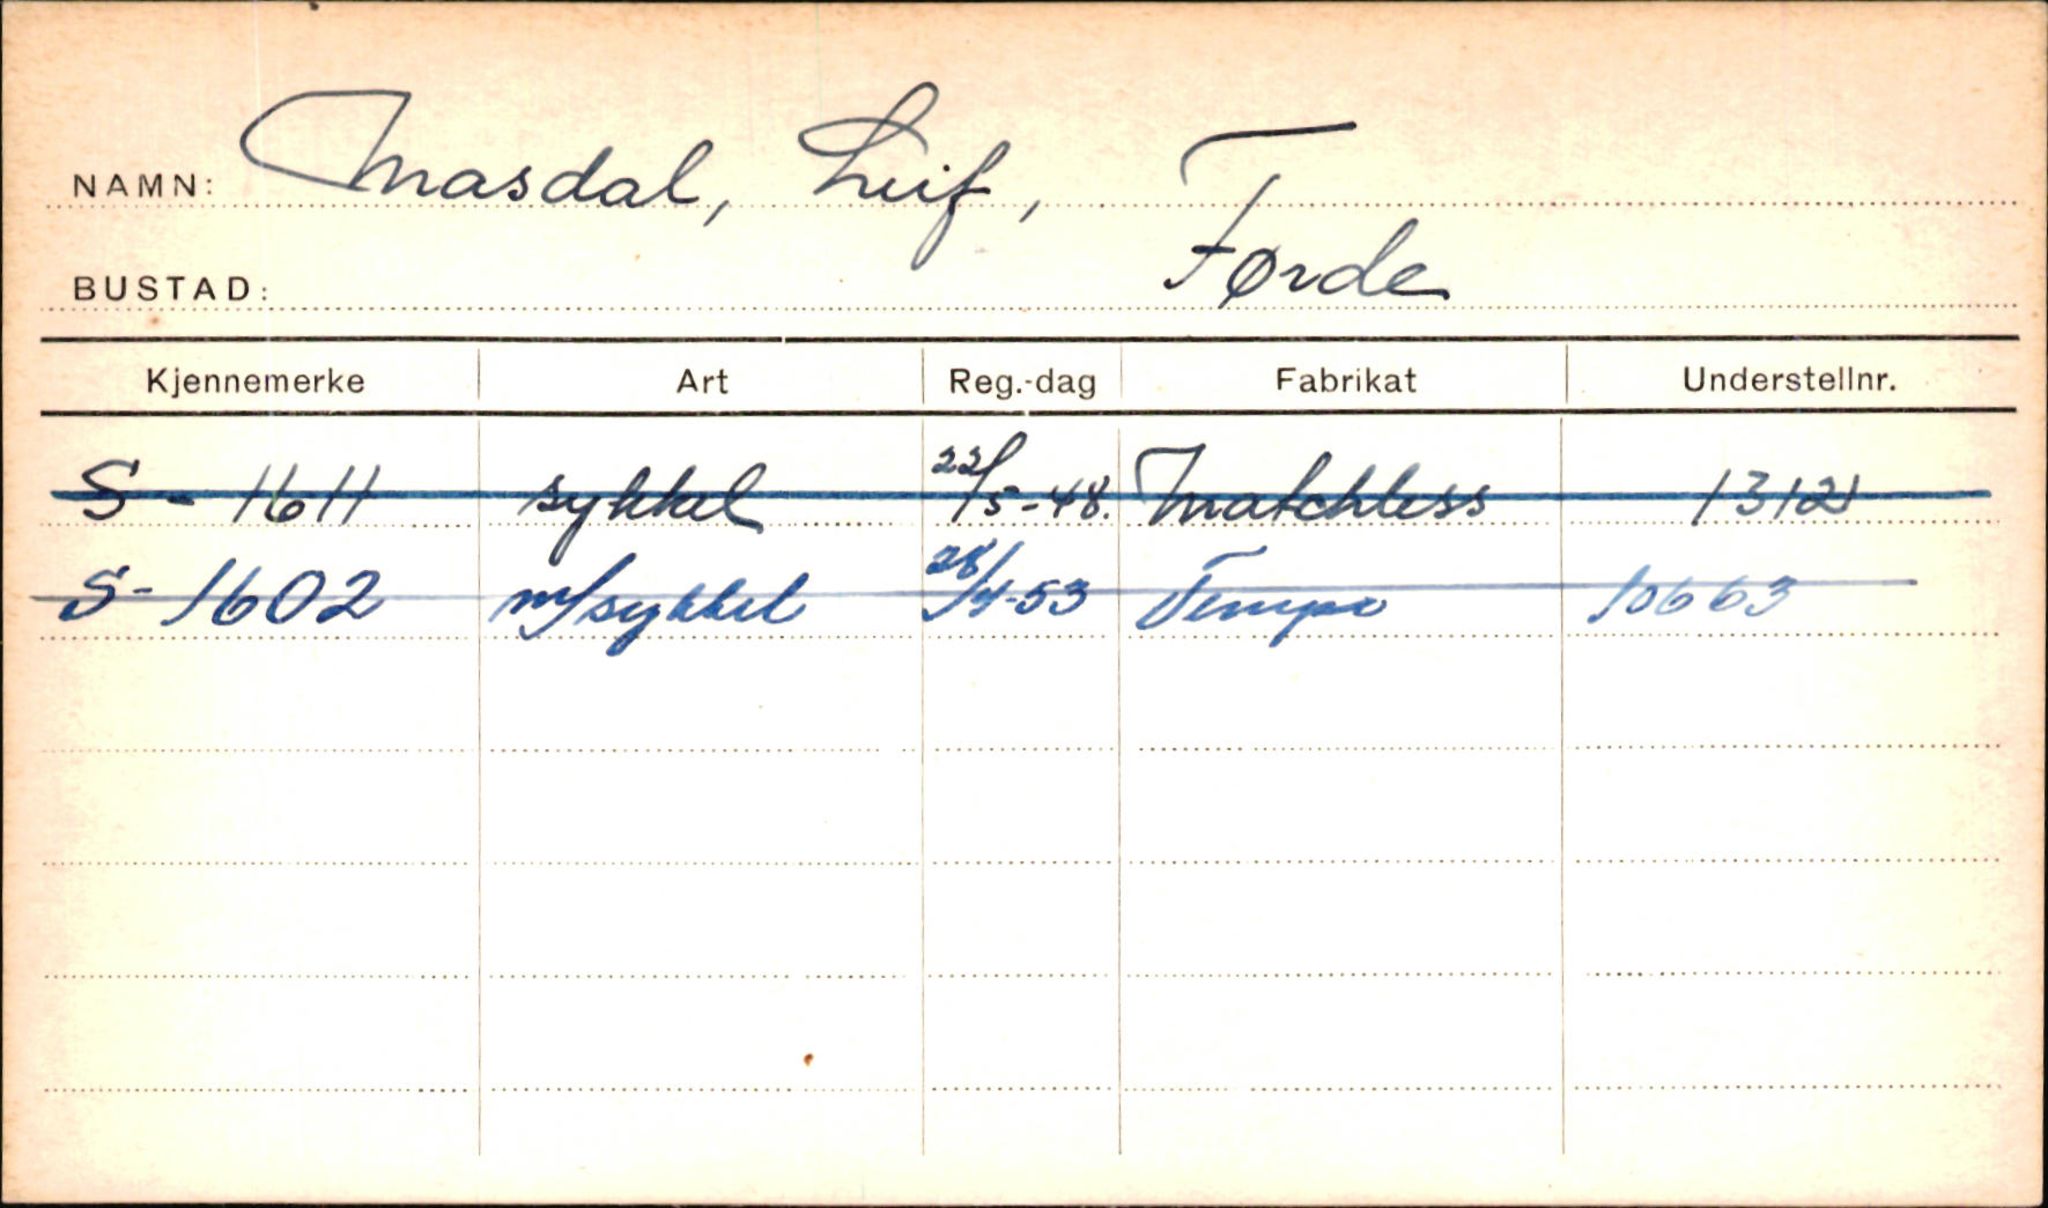 NAMN: Masdal, Leif,
BUSTAD: Førde
Kjennemerke Art Reg.-dag Fabrikat Understellnr.
S - 1611 sykkel 22/5-48. Matchless 13121
S- 1602 m/sykkel 28/4-53 Tempo 10663